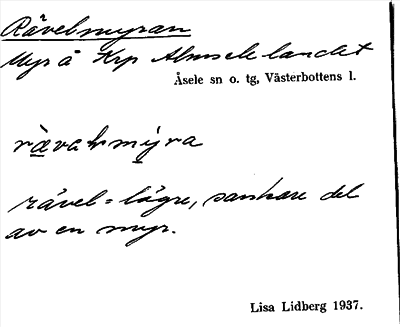 Råvelmyran
Myr å Krp Almselelandet
Åsele sn o. tg, Västerbottens l.
råvel = lägre, sankare del
av en myr.
Lisa Lidberg 1937.